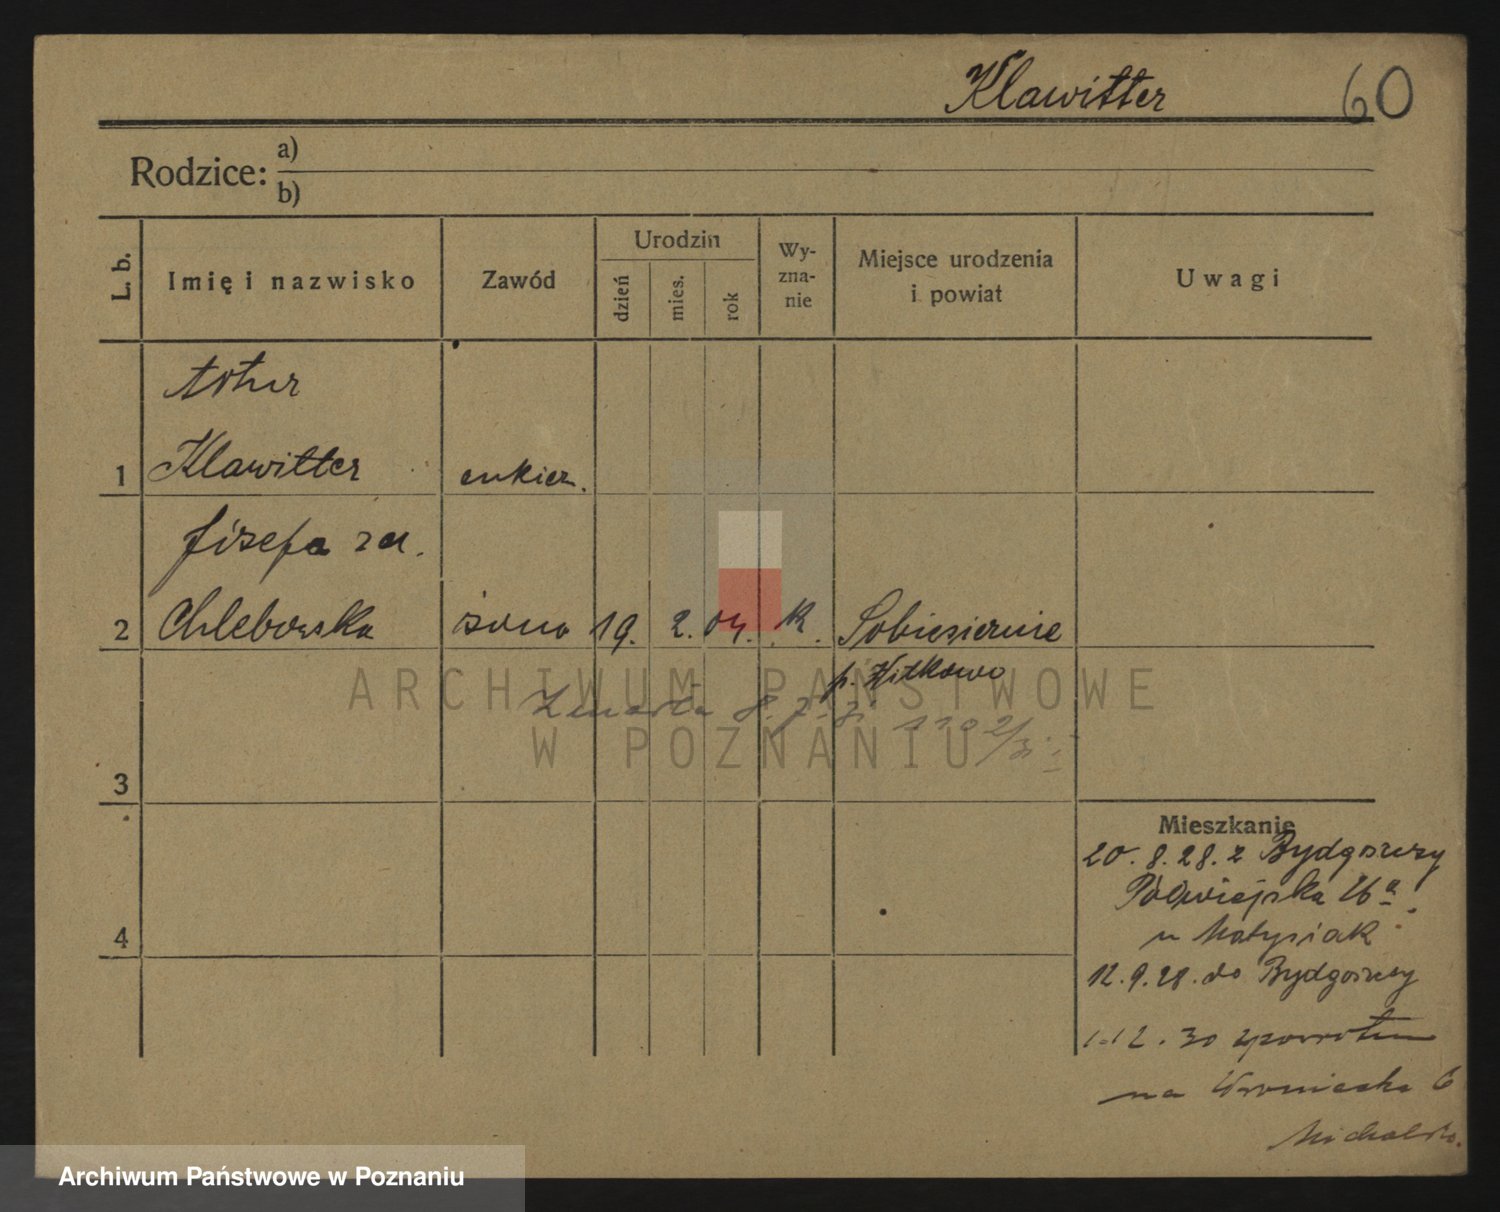 Klawitter 60
Rodzice: a)
b)
L. b. Imię i nazwisko Zawód Urodzin dzień mies. rok Wy-zna-nie Miejsce urodzenia i powiat Uwagi
Artur
1 Klawitter cukier.
Józefa zd.
2 Chlebowska żona 19. 2. 04. k. Sobiesiernie
p. Witkowo
Zmarła 8. 7. 31
ARCHIWUM PAŃSTWOWE
W POZNANIU
3
Mieszkanie
20. 8. 28. z Bydgoszczy
Półwiejska 26a
4 u Matysiak
12. 9. 28. do Bydgoszczy
1.12.30 zpowrotem
na Wroniecka 6
Michalska.
Archiwum Państwowe w Poznaniu